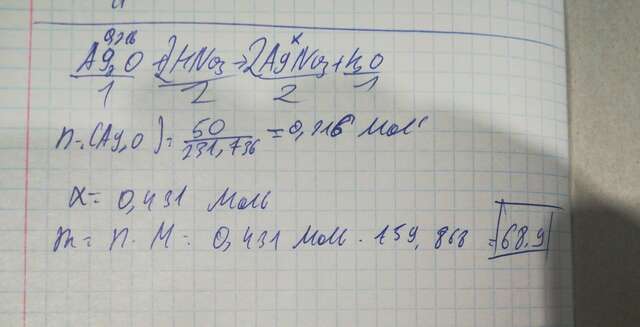 0,216 x
Ag2O + 2HNO3 → 2AgNO3 + H2O
1 2 2 1
n(Ag2O) = 50/231,736 = 0,216 моль
x = 0,431 моль
m = n · M = 0,431 моль · 169,868 = 68,9